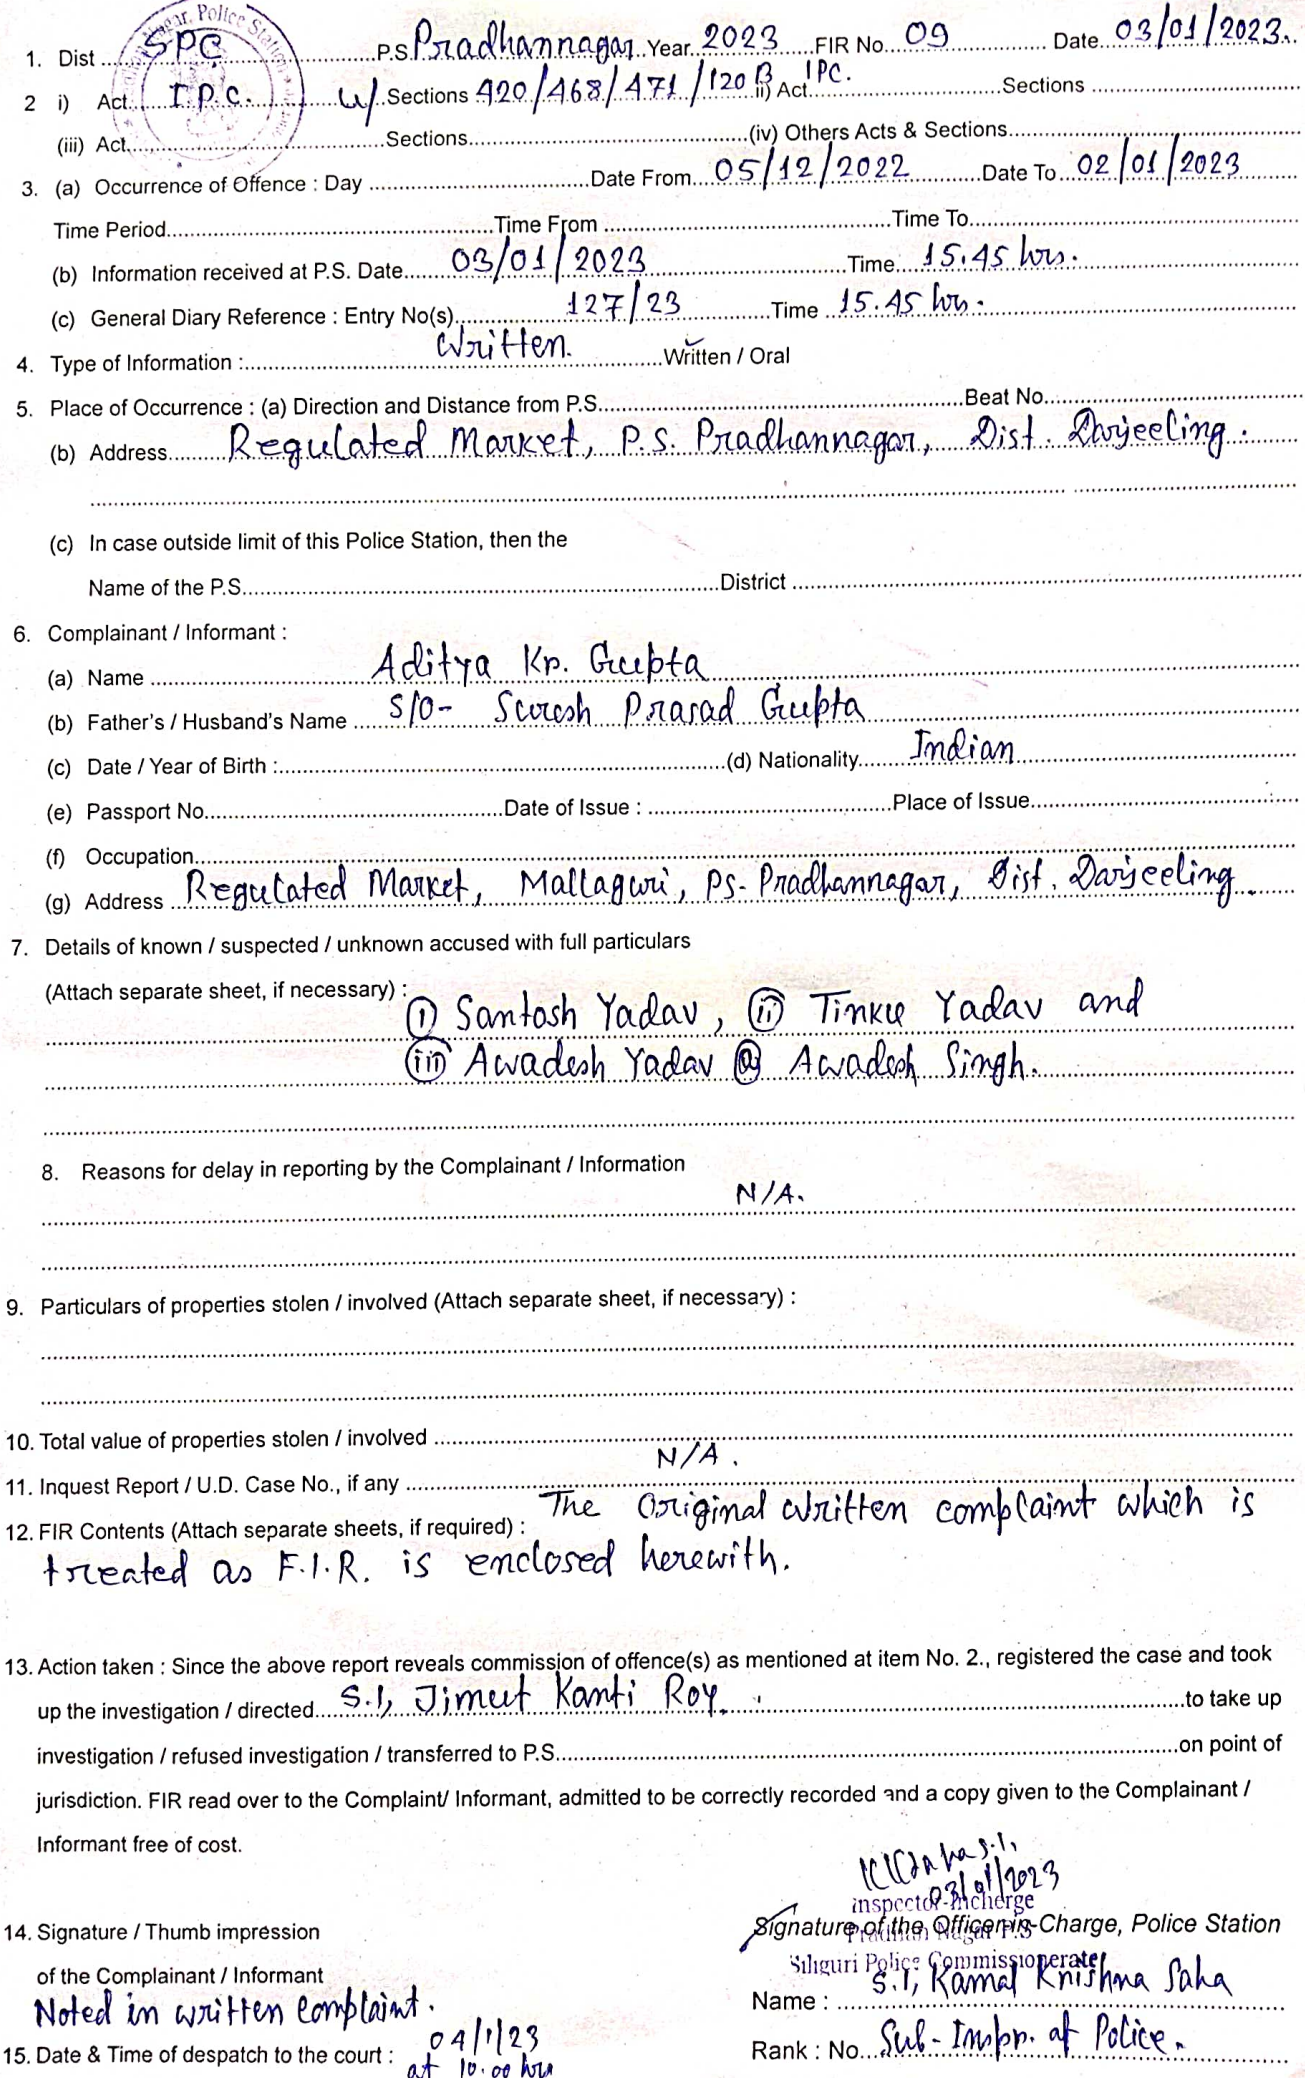 Nagar, Police Station
1. Dist SPC P.S. Pradhannagar Year 2023 FIR No. 09 Date 03/01/2023.
2 i) Act I.P.C. u/ Sections 420/468/471/120B ii) Act IPC. Sections
(iii) Act Sections (iv) Others Acts & Sections
3. (a) Occurrence of Offence : Day Date From 05/12/2022 Date To 02/01/2023
Time Period Time From Time To
(b) Information received at P.S. Date 03/01/2023 Time 15.45 hrs.
(c) General Diary Reference : Entry No(s) 127/23 Time 15.45 hrs.
4. Type of Information : Written. Written / Oral
5. Place of Occurrence : (a) Direction and Distance from P.S. Beat No.
(b) Address Regulated Market, P.S. Pradhannagar, Dist. Darjeeling.
(c) In case outside limit of this Police Station, then the
Name of the P.S. District
6. Complainant / Informant :
(a) Name Aditya Kr. Gupta
(b) Father's / Husband's Name S/O- Suresh Prasad Gupta
(c) Date / Year of Birth : (d) Nationality Indian
(e) Passport No. Date of Issue : Place of Issue
(f) Occupation
(g) Address Regulated Market, Mallaguri, PS- Pradhannagar, Dist. Darjeeling.
7. Details of known / suspected / unknown accused with full particulars
(Attach separate sheet, if necessary) :
(i) Santosh Yadav, (ii) Tinku Yadav and
(iii) Awadesh Yadav @ Awadesh Singh.
8. Reasons for delay in reporting by the Complainant / Information
N/A.
9. Particulars of properties stolen / involved (Attach separate sheet, if necessary) :
10. Total value of properties stolen / involved
N/A.
11. Inquest Report / U.D. Case No., if any
12. FIR Contents (Attach separate sheets, if required) : The Original written complaint which is
treated as F.I.R. is enclosed herewith.
13. Action taken : Since the above report reveals commission of offence(s) as mentioned at item No. 2., registered the case and took
up the investigation / directed S.I, Jimut Kanti Roy. to take up
investigation / refused investigation / transferred to P.S. on point of
jurisdiction. FIR read over to the Complaint/ Informant, admitted to be correctly recorded and a copy given to the Complainant /
Informant free of cost.
S.I,
03/01/2023
Inspector-Incherge
14. Signature / Thumb impression
Signature of the Officer-in-Charge, Police Station
Pradhan Nagar P.S
Siliguri Police Commissionerate
of the Complainant / Informant
Name : S.I, Kamal Krishna Saha
Noted in written complaint.
Rank : No. Sub-Inspr. of Police.
15. Date & Time of despatch to the court : 04/1/23
at 10.00 hrs